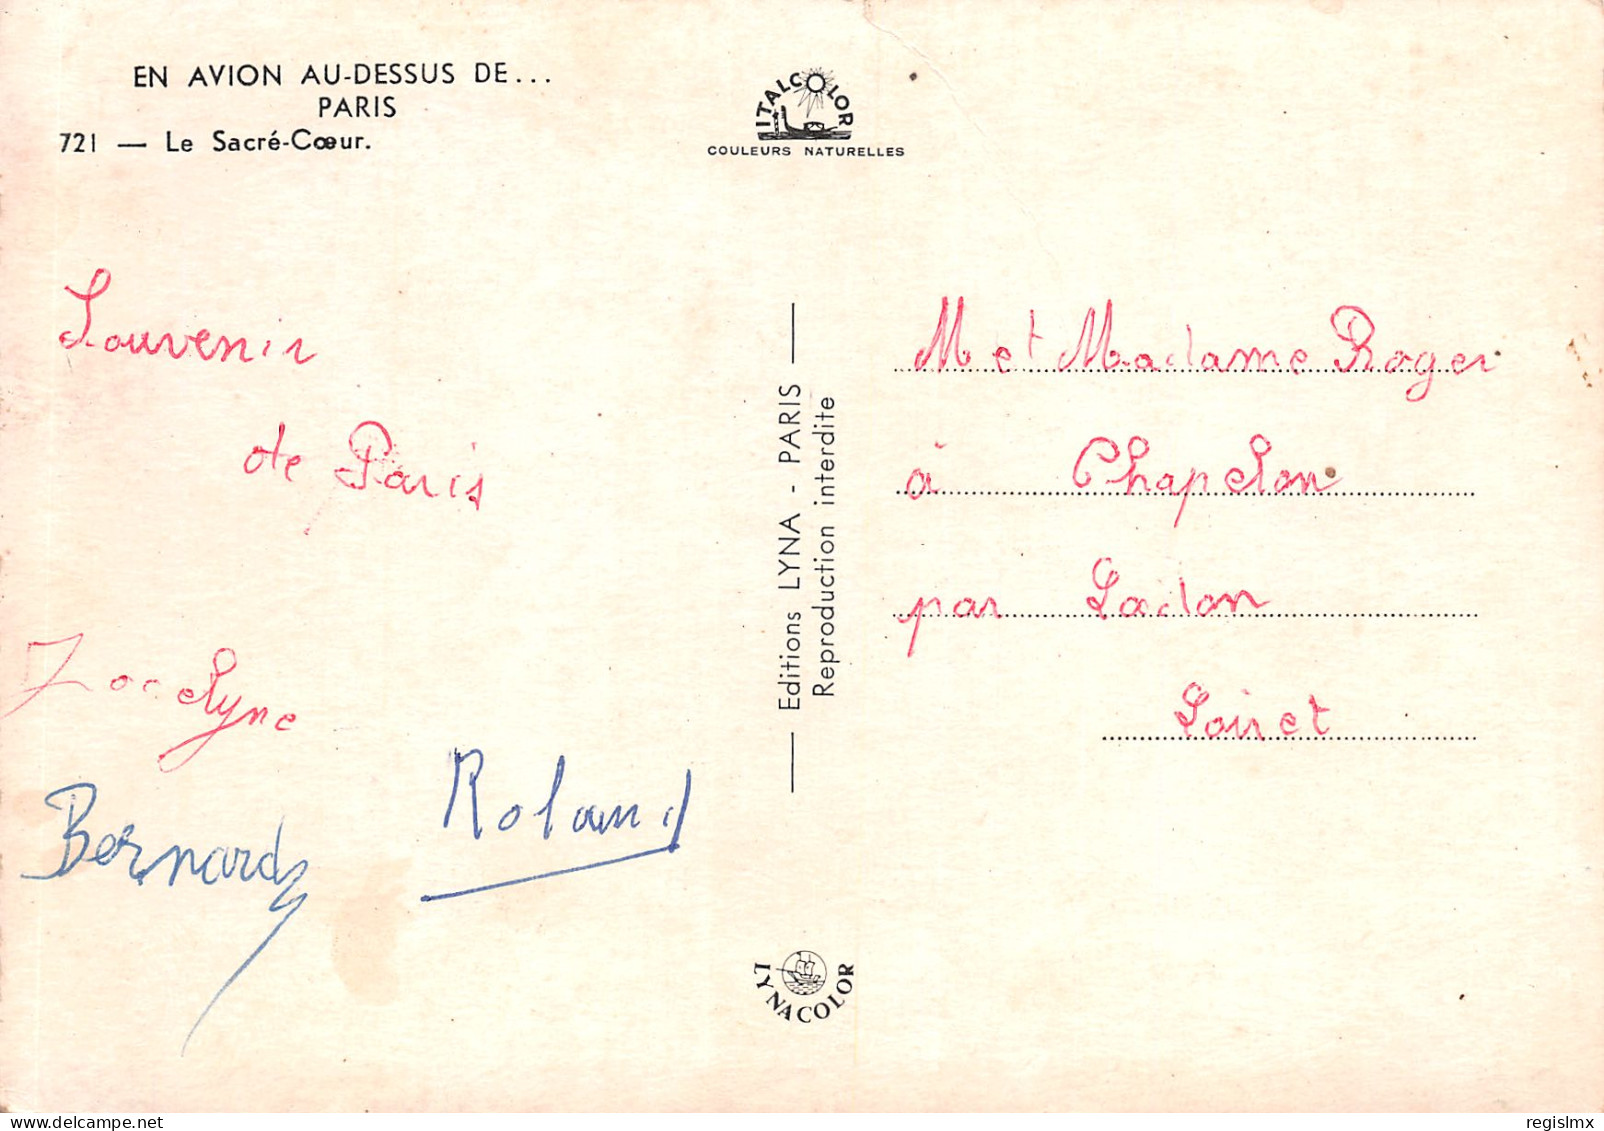 EN AVION AU-DESSUS DE...
PARIS
721 — Le Sacré-Cœur.
ITALCOLOR
COULEURS NATURELLES
Souvenir
de Paris
Jocelyne
Bernard
Roland
Editions LYNA - PARIS
Reproduction interdite
M et Madame Roger
à Chapelon
par Ladon
Loiret
LYNACOLOR
delcampe.net
regislmx